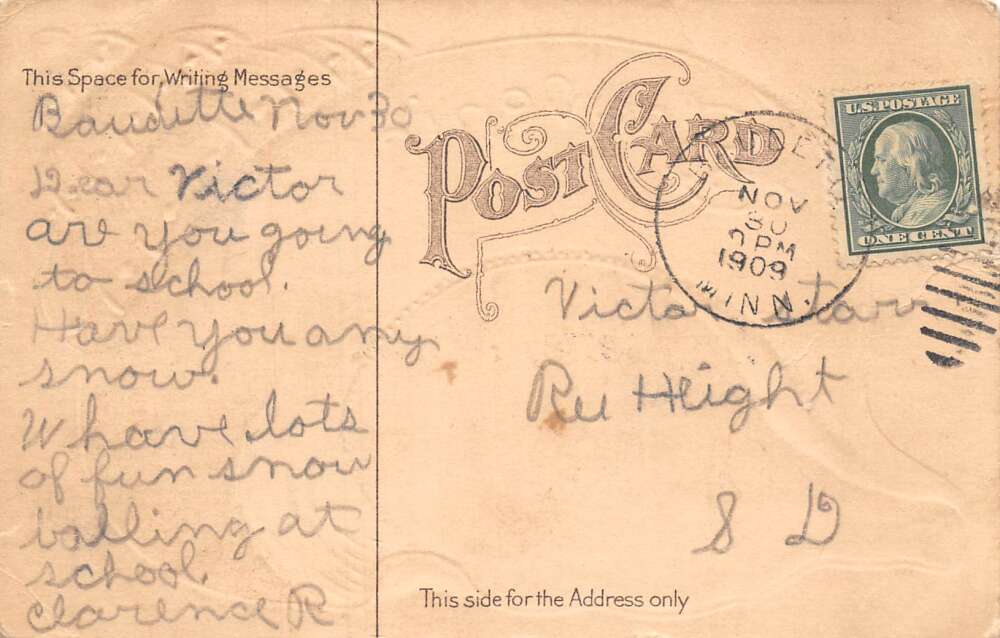 This Space for Writing Messages
Baudette Nov 30
Dear Victor
are you going
to school.
Have you any
snow.
W have lots
of fun snow
balling at
school.
Clarence R
POST CARD
NOV
30
PM
1909
MINN.
U.S. POSTAGE
ONE CENT
Victor Starr
Ree Height
S D
This side for the Address only